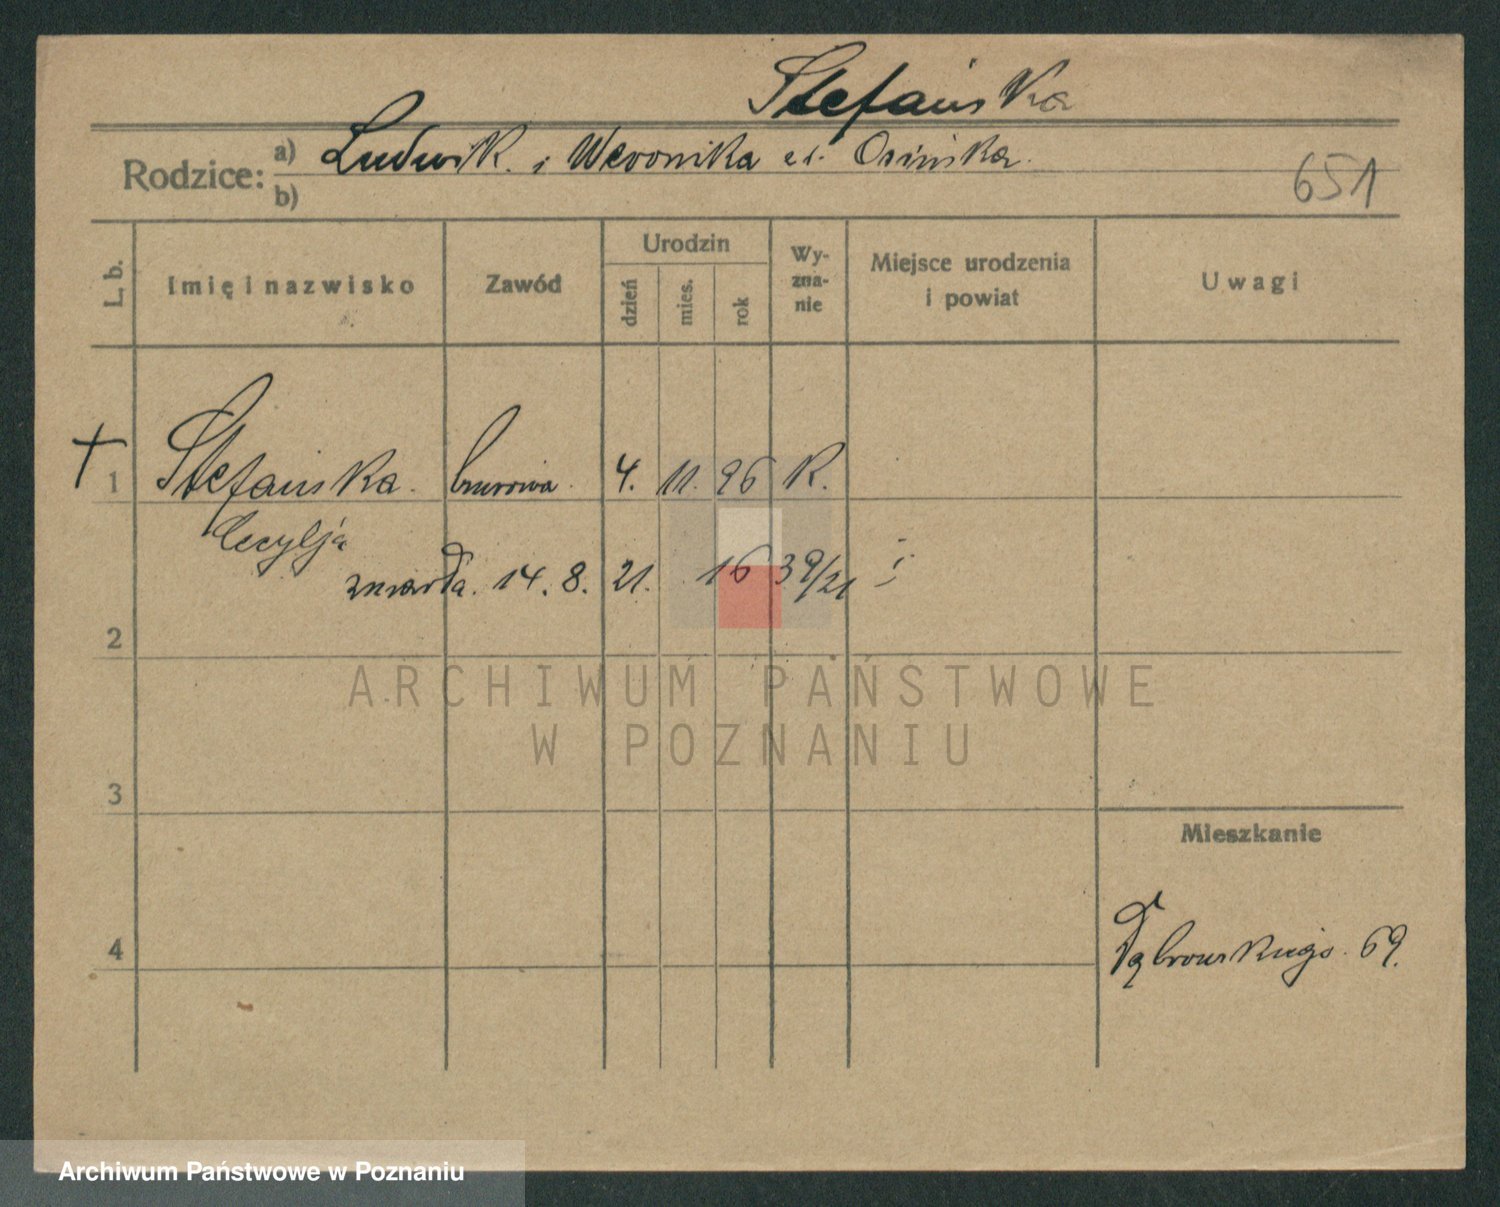 Stefańska
Rodzice: a) Ludwik. i Weronika z d. Osińska.
b)
651
L. b. Imię i nazwisko Zawód Urodzin dzień mies. rok Wyznanie Miejsce urodzenia i powiat Uwagi
† 1 Stefańska. biurowa. 4. 11. 96 K.
Cecylja
zmarła. 14. 8. 21. 16 39/21
2
ARCHIWUM PAŃSTWOWE
W POZNANIU
3
Mieszkanie
4 Dąbrowskiego. 69.
Archiwum Państwowe w Poznaniu